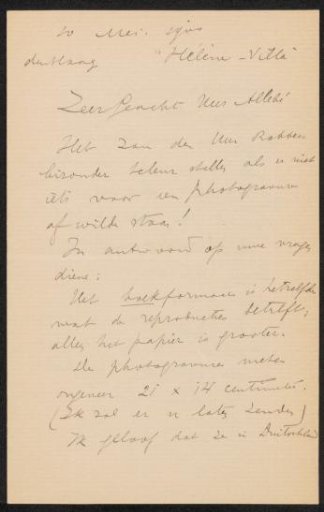 20 Mei.
den Haag "Hélène-Villa"
Zeer Geacht Heer Allebé
Het zou den Heer Robbers
bizonder teleurstellen als u niet
iets voor een photogravure
af wilde staan!
In antwoord op uwe vragen
diene:
Het boekformaat is hetzelfde
wat de reproducties betreft;
alles het papier is grooter.
De photogravures meten
ongeveer 21 x 14 centimeter.
(Ik zal er u laten zenden)
Ik geloof dat ze in Duitschland